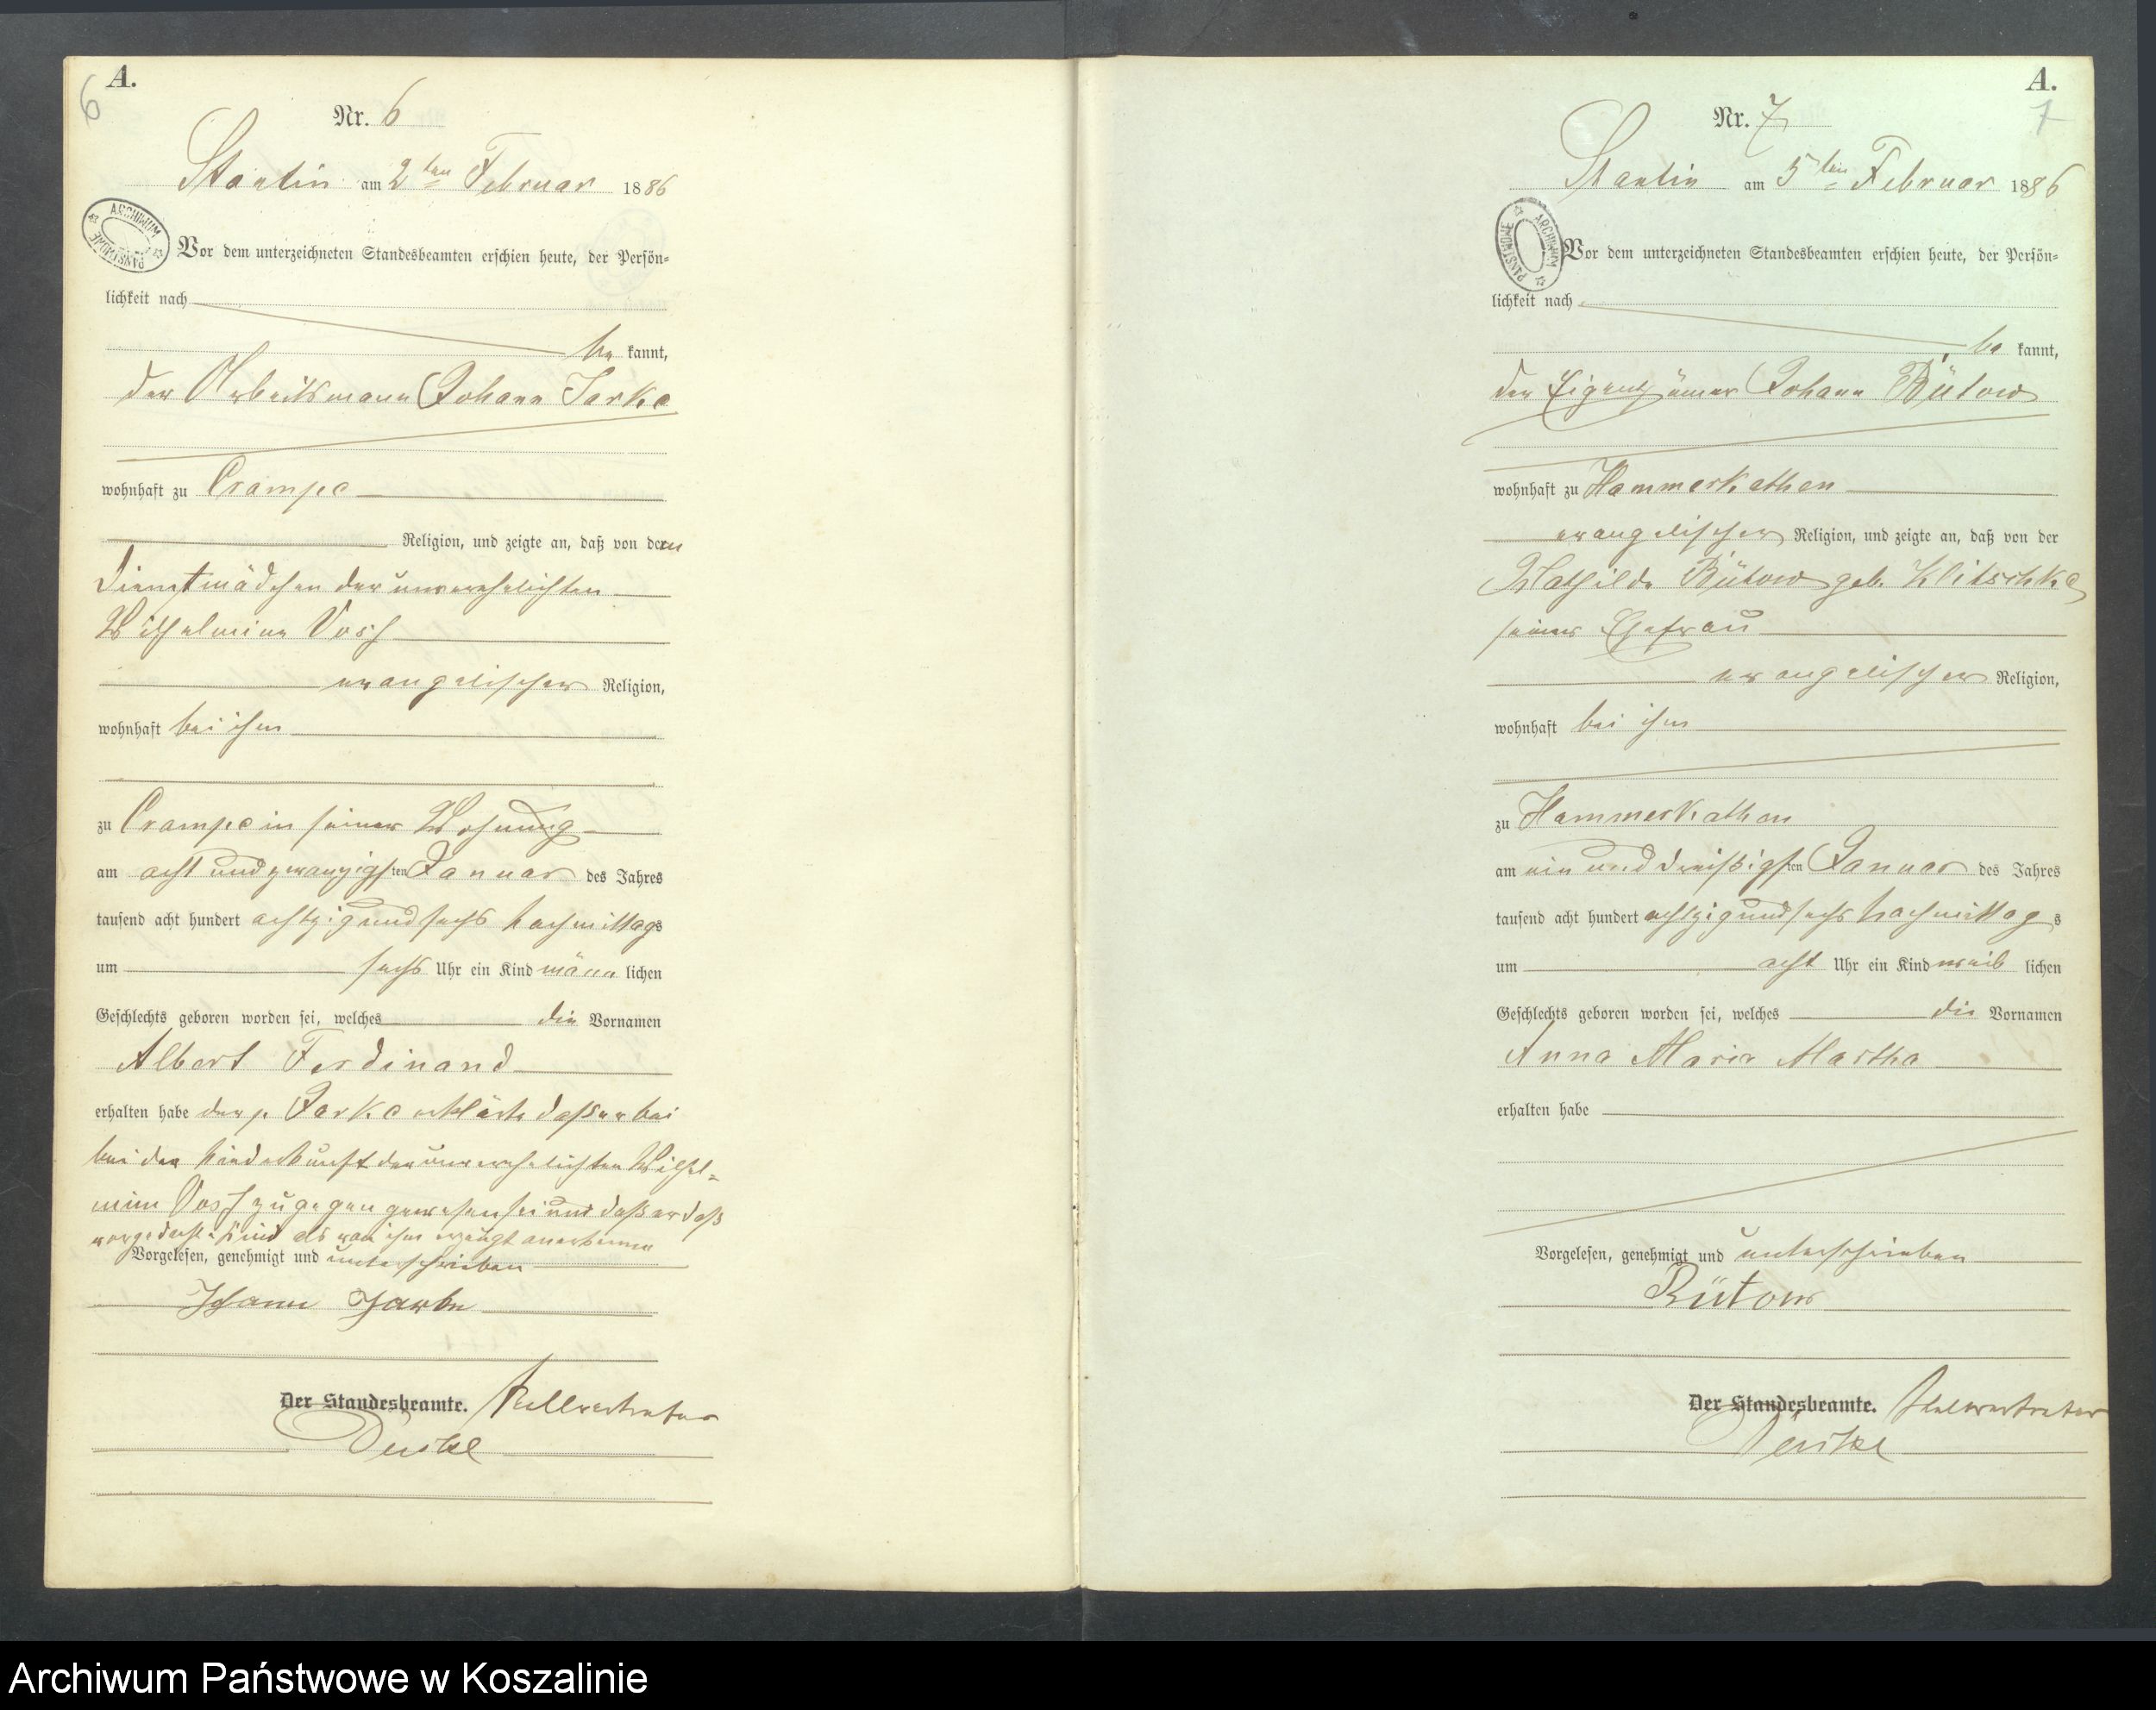 6
A.
Nr. 6
Stantin am 2ten Februar 1886
ARCHIWUM PAŃSTWOWE
Vor dem unterzeichneten Standesbeamten erschien heute, der Persön-
lichkeit nach
be kannt,
der Arbeitsmann Johann Jarke
wohnhaft zu Crampe
Religion, und zeigte an, daß von dem
Dienstmädchen der unverehelichten
Wilhelmine Voss
evangelischer Religion,
wohnhaft bei ihm
zu Crampe in seiner Wohnung
am acht und zwanzigsten Januar des Jahres
tausend acht hundert achtzig und sechs Nachmittags
um sechs Uhr ein Kind männ lichen
Geschlechts geboren worden sei, welches die Vornamen
Albert Ferdinand
erhalten habe der p. Jarke erklärte daß er bei
bei der Niederkunft der unverehelichten Wilhel-
mine Voss zugegen gewesen sei und daß er daß
vorgedachte Kind als von ihm erzeugt anerkenne
Vorgelesen, genehmigt und unterschrieben
Johann Jarke
Der Standesbeamte. Stellvertreter
A.
7
Nr. 7
Stantin am 5ten Februar 1886
ARCHIWUM PAŃSTWOWE
Vor dem unterzeichneten Standesbeamten erschien heute, der Persön-
lichkeit nach
be kannt,
der Eigenthümer Johann Bütow
wohnhaft zu Hammerkathen
evangelischer Religion, und zeigte an, daß von der
Mathilde Bütow geb. Klitschke
seiner Ehefrau
evangelischer Religion,
wohnhaft bei ihm
zu Hammerkathen
am ein und dreißigsten Januar des Jahres
tausend acht hundert achtzig und sechs Nachmittag s
um acht Uhr ein Kind weib lichen
Geschlechts geboren worden sei, welches die Vornamen
Anna Marie Martha
erhalten habe
Vorgelesen, genehmigt und unterschrieben
Bütow
Der Standesbeamte. Stellvertreter
Archiwum Państwowe w Koszalinie